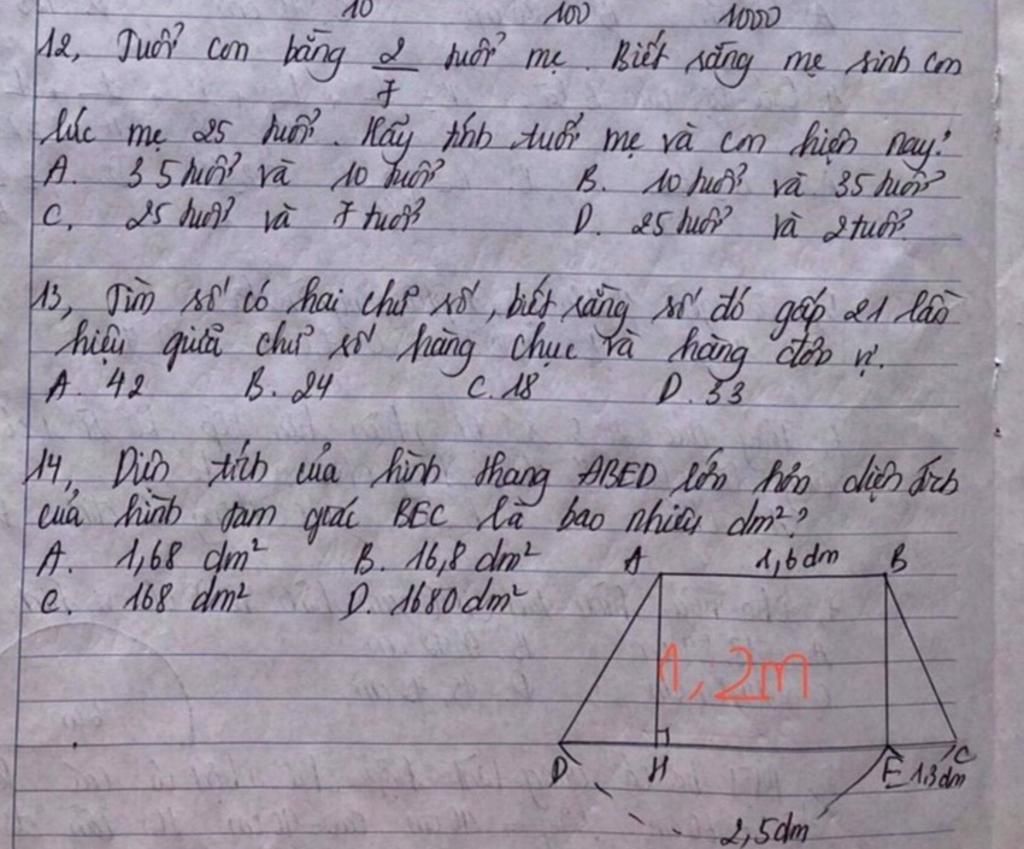 10 100 1000
12, Tuổi con bằng 2/7 tuổi mẹ. Biết rằng mẹ sinh con
lúc mẹ 25 tuổi. Hãy tính tuổi mẹ và con hiện nay?
A. 35 tuổi và 10 tuổi B. 10 tuổi và 35 tuổi
C. 25 tuổi và 7 tuổi D. 25 tuổi và 2 tuổi.
13, Tìm số có hai chữ số, biết rằng số đó gấp 21 lần
hiệu giữa chữ số hàng chục và hàng đơn vị.
A. 42 B. 24 C. 18 D. 33
14, Diện tích của hình thang ABED lớn hơn diện tích
của hình tam giác BEC là bao nhiêu dm²?
A. 1,68 dm² B. 16,8 dm²
C. 168 dm² D. 1680 dm²
A 1,6dm B
1,2m
D H E 1,3dm C
2,5dm